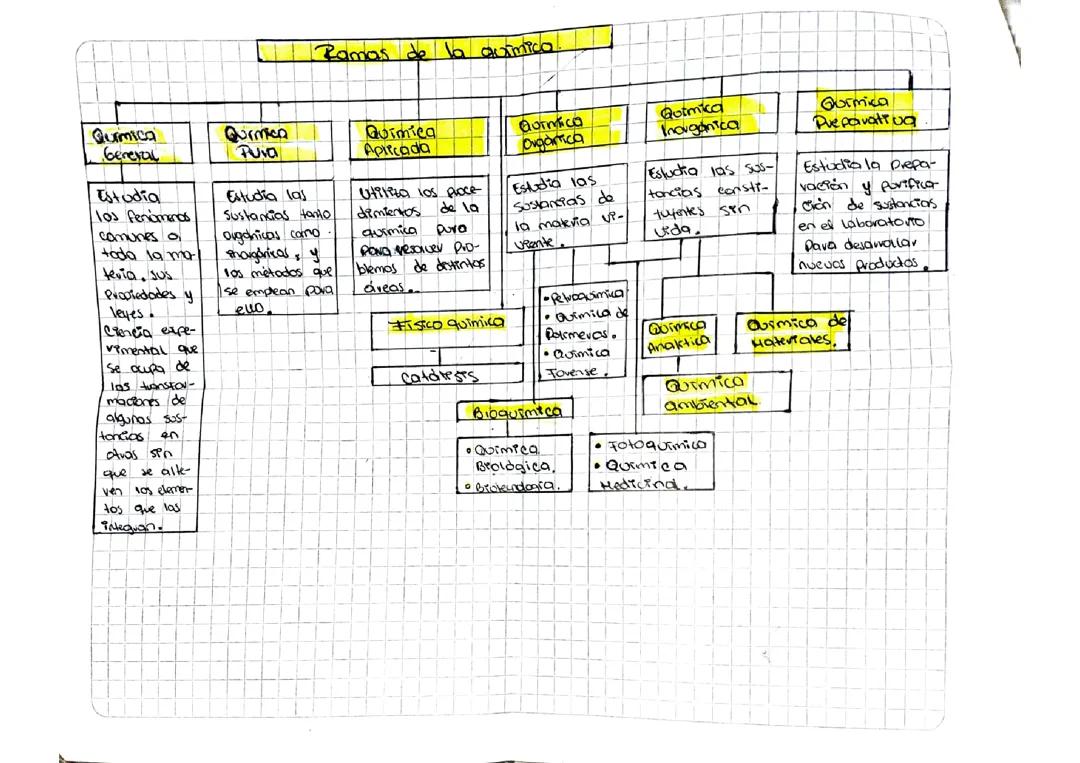 Ramas de la química.
Química
General
Estudia
los fenómenos
comunes a
toda la ma-
teria, sus
propiedades y
leyes.
Ciencia expe-
rimental que
se ocupa de
las transfor-
maciones de
algunas sus-
tancias en
otras sin
que se alte-
ren los elemen-
tos que las
integran.
Química
Pura
Estudia las
sustancias tanto
orgánicas como
inorgánicas, y
los métodos que
se emplean para
ello.
Química
Aplicada
Utiliza los proce-
dimientos de la
química pura
para resolver pro-
blemas de distintas
áreas.
Físico química
Catálisis
Química
orgánica
Estudia las
sustancias de
la materia vi-
viente.
• Petroquímica
• Química de
Polímeros.
• Química
Forense.
Bioquímica
• Química
Biológica.
• Biotecnología.
Química
Inorgánica
Estudia las sus-
tancias consti-
tuyentes sin
vida.
• Fotoquímica
• Química
Medicinal.
Química
Analítica
Química
ambiental
Química de
Materiales.
Química
Preparativa
Estudia la prepa-
ración y purifica-
ción de sustancias
en el laboratorio
para desarrollar
nuevos productos.